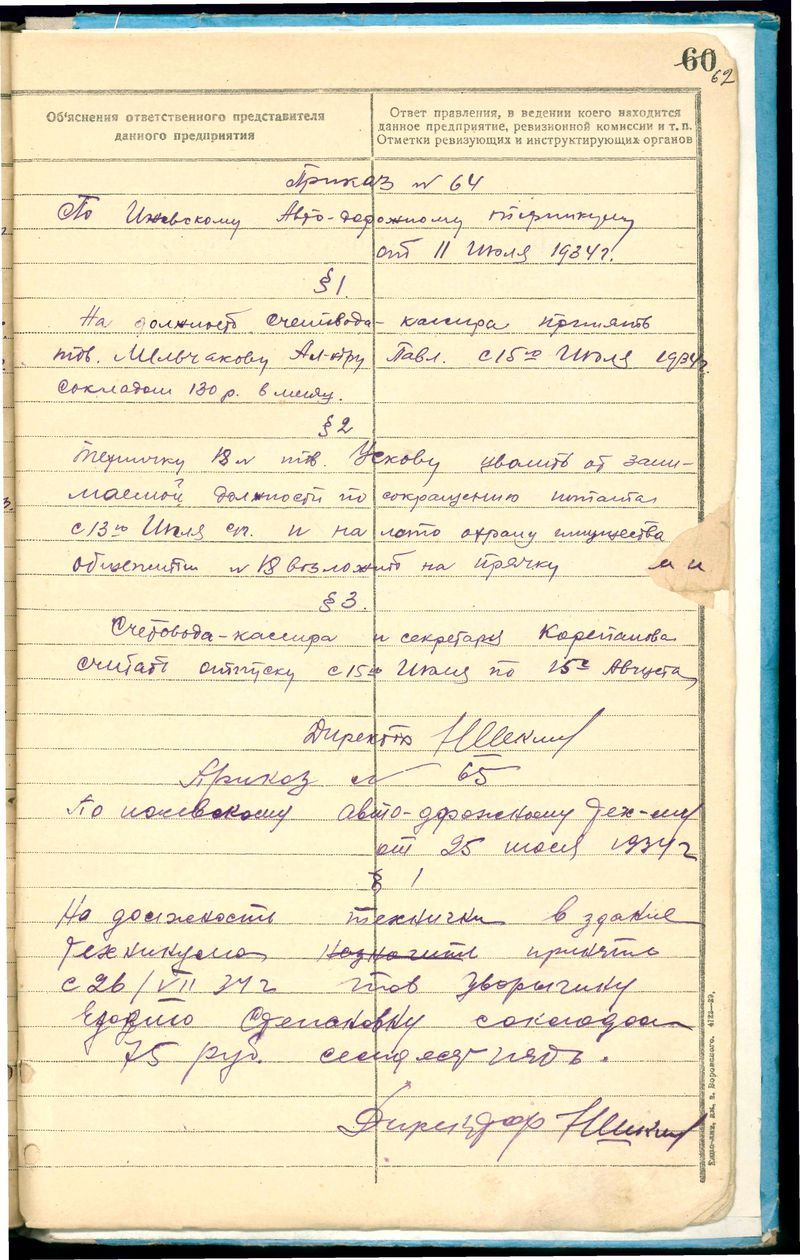 60
62
Об'яснения ответственного представителя
данного предприятия
Ответ правления, в ведении коего находится
данное предприятие, ревизионной комиссии и т. п.
Отметки ревизующих и инструктирующих органов
Приказ № 64
По Ижевскому Авто-дорожному техникуму
от 11 Июля 1934 г.
§ 1.
На должность счетовода-кассира принять
тов. Мельчакову Ал-дру Павл. с 15го Июля 1934 г.
с окладом 130 р. в месяц.
§ 2
Техничку тов. Ускову уволить от зани-
маемой должности по сокращению штата
с 13го Июля и на лето охрану имущества
общежития возложить на прачку
§ 3.
Счетовода-кассира и секретаря Корепанова
считать отпуску с 15го Июля по 15е Августа
Директор
Приказ № 65
По ижевскому авто-дорожному тех-му
от 25 июля 1934 г
§ 1
На должность технички в здание
техникума назначить принять
с 26/VII 34 г тов Зворыгину
с окладом
75 руб. семдесят пять.
Директор